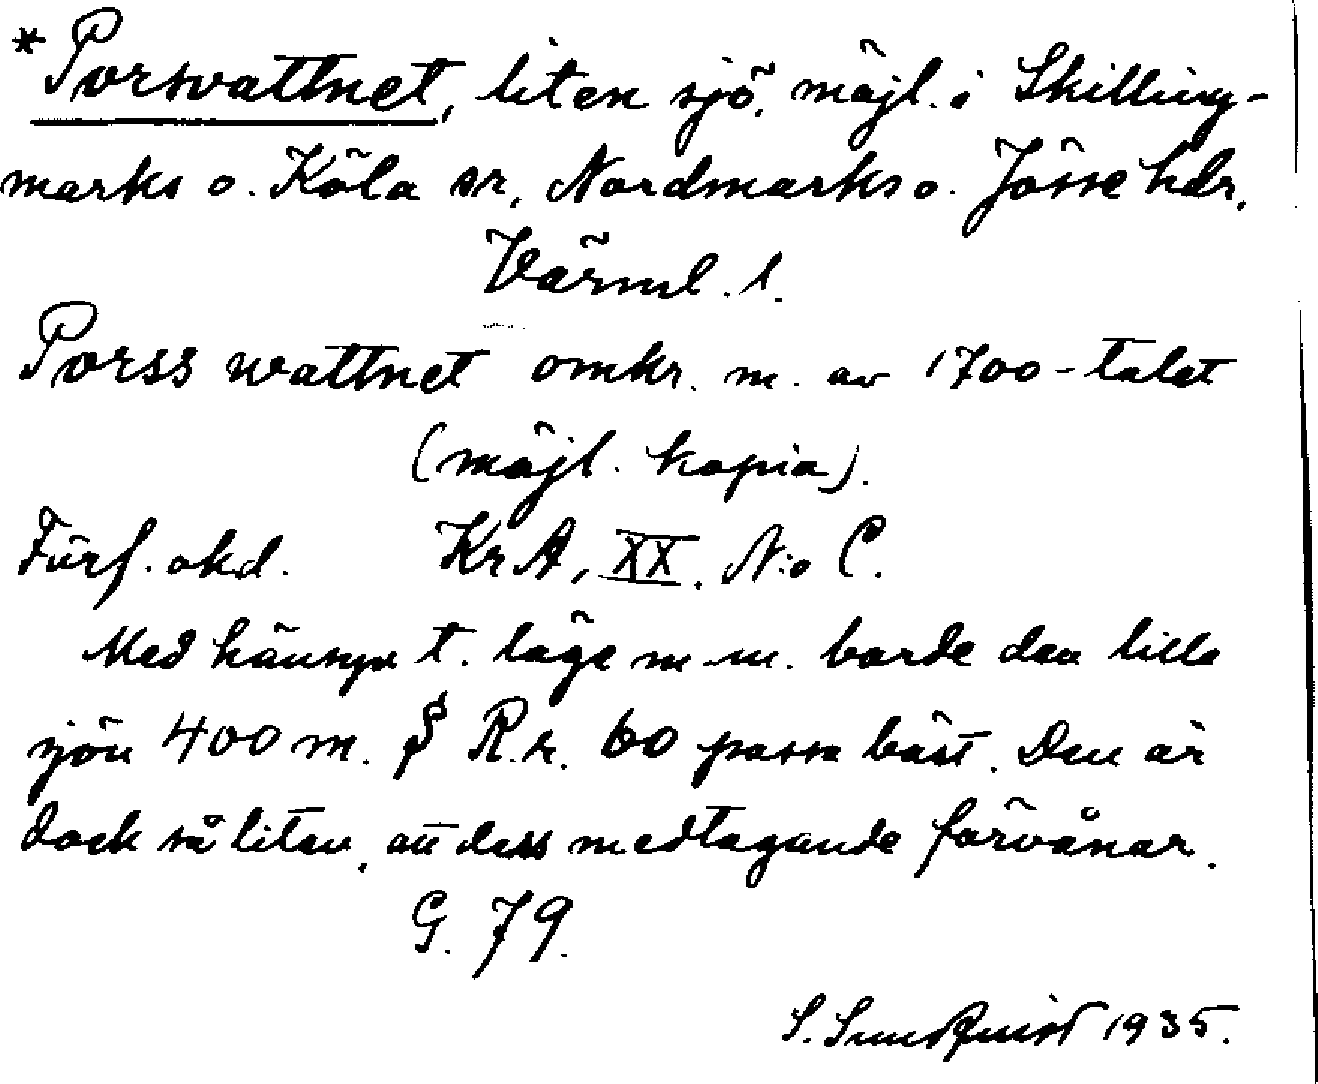 *Porsvattnet, liten sjö, möjl. i Skilling-
marks o. Köla snr, Nordmarks o. Jösse hdr,
Värml. l.
Porss wattnet omkr. m. av 1700-talet
(möjl. kopia).
Förf. okd. KrA, XX. N:o C.
Med hänsyn t. läge m.m. borde den lilla
sjön 400 m. S R.r. 60 passa bäst. Den är
dock så liten, att dess medtagande förvånar.
G. 79.
S. Sundquist 1935.